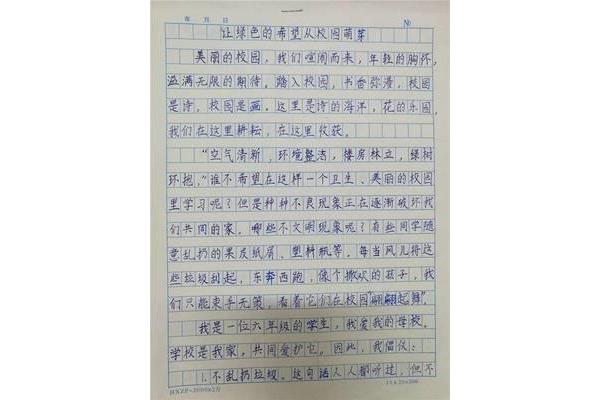 年 月 日 №
让绿色的希望从校园萌芽
美丽的校园，我们喧闹而来，年轻的胸怀，
溢满无限的期待。踏入校园，书香弥漫，校园
是诗，校园是画。这里是诗的海洋，花的乐园，
我们在这里耕耘，在这里收获。
“空气清新，环境整洁，楼房林立，绿树
环抱，”谁不希望在这样一个卫生、美丽的校园
里学习呢？但是种种不良现象正在逐渐破坏我
们共同的家。哪些不文明现象呢？有些同学随
意乱扔的果皮纸屑、塑料瓶等。每当风儿将这
些垃圾刮起，东奔西跑，像个撒欢的孩子，我
们只能束手无策，看着它们在校园“翩翩起舞”。
我是一位六年级的学生，我爱我的母校。
学校是我家，共同爱护它。因此，我倡仪：
1.不乱扔垃圾。这句话人人都听过，但不